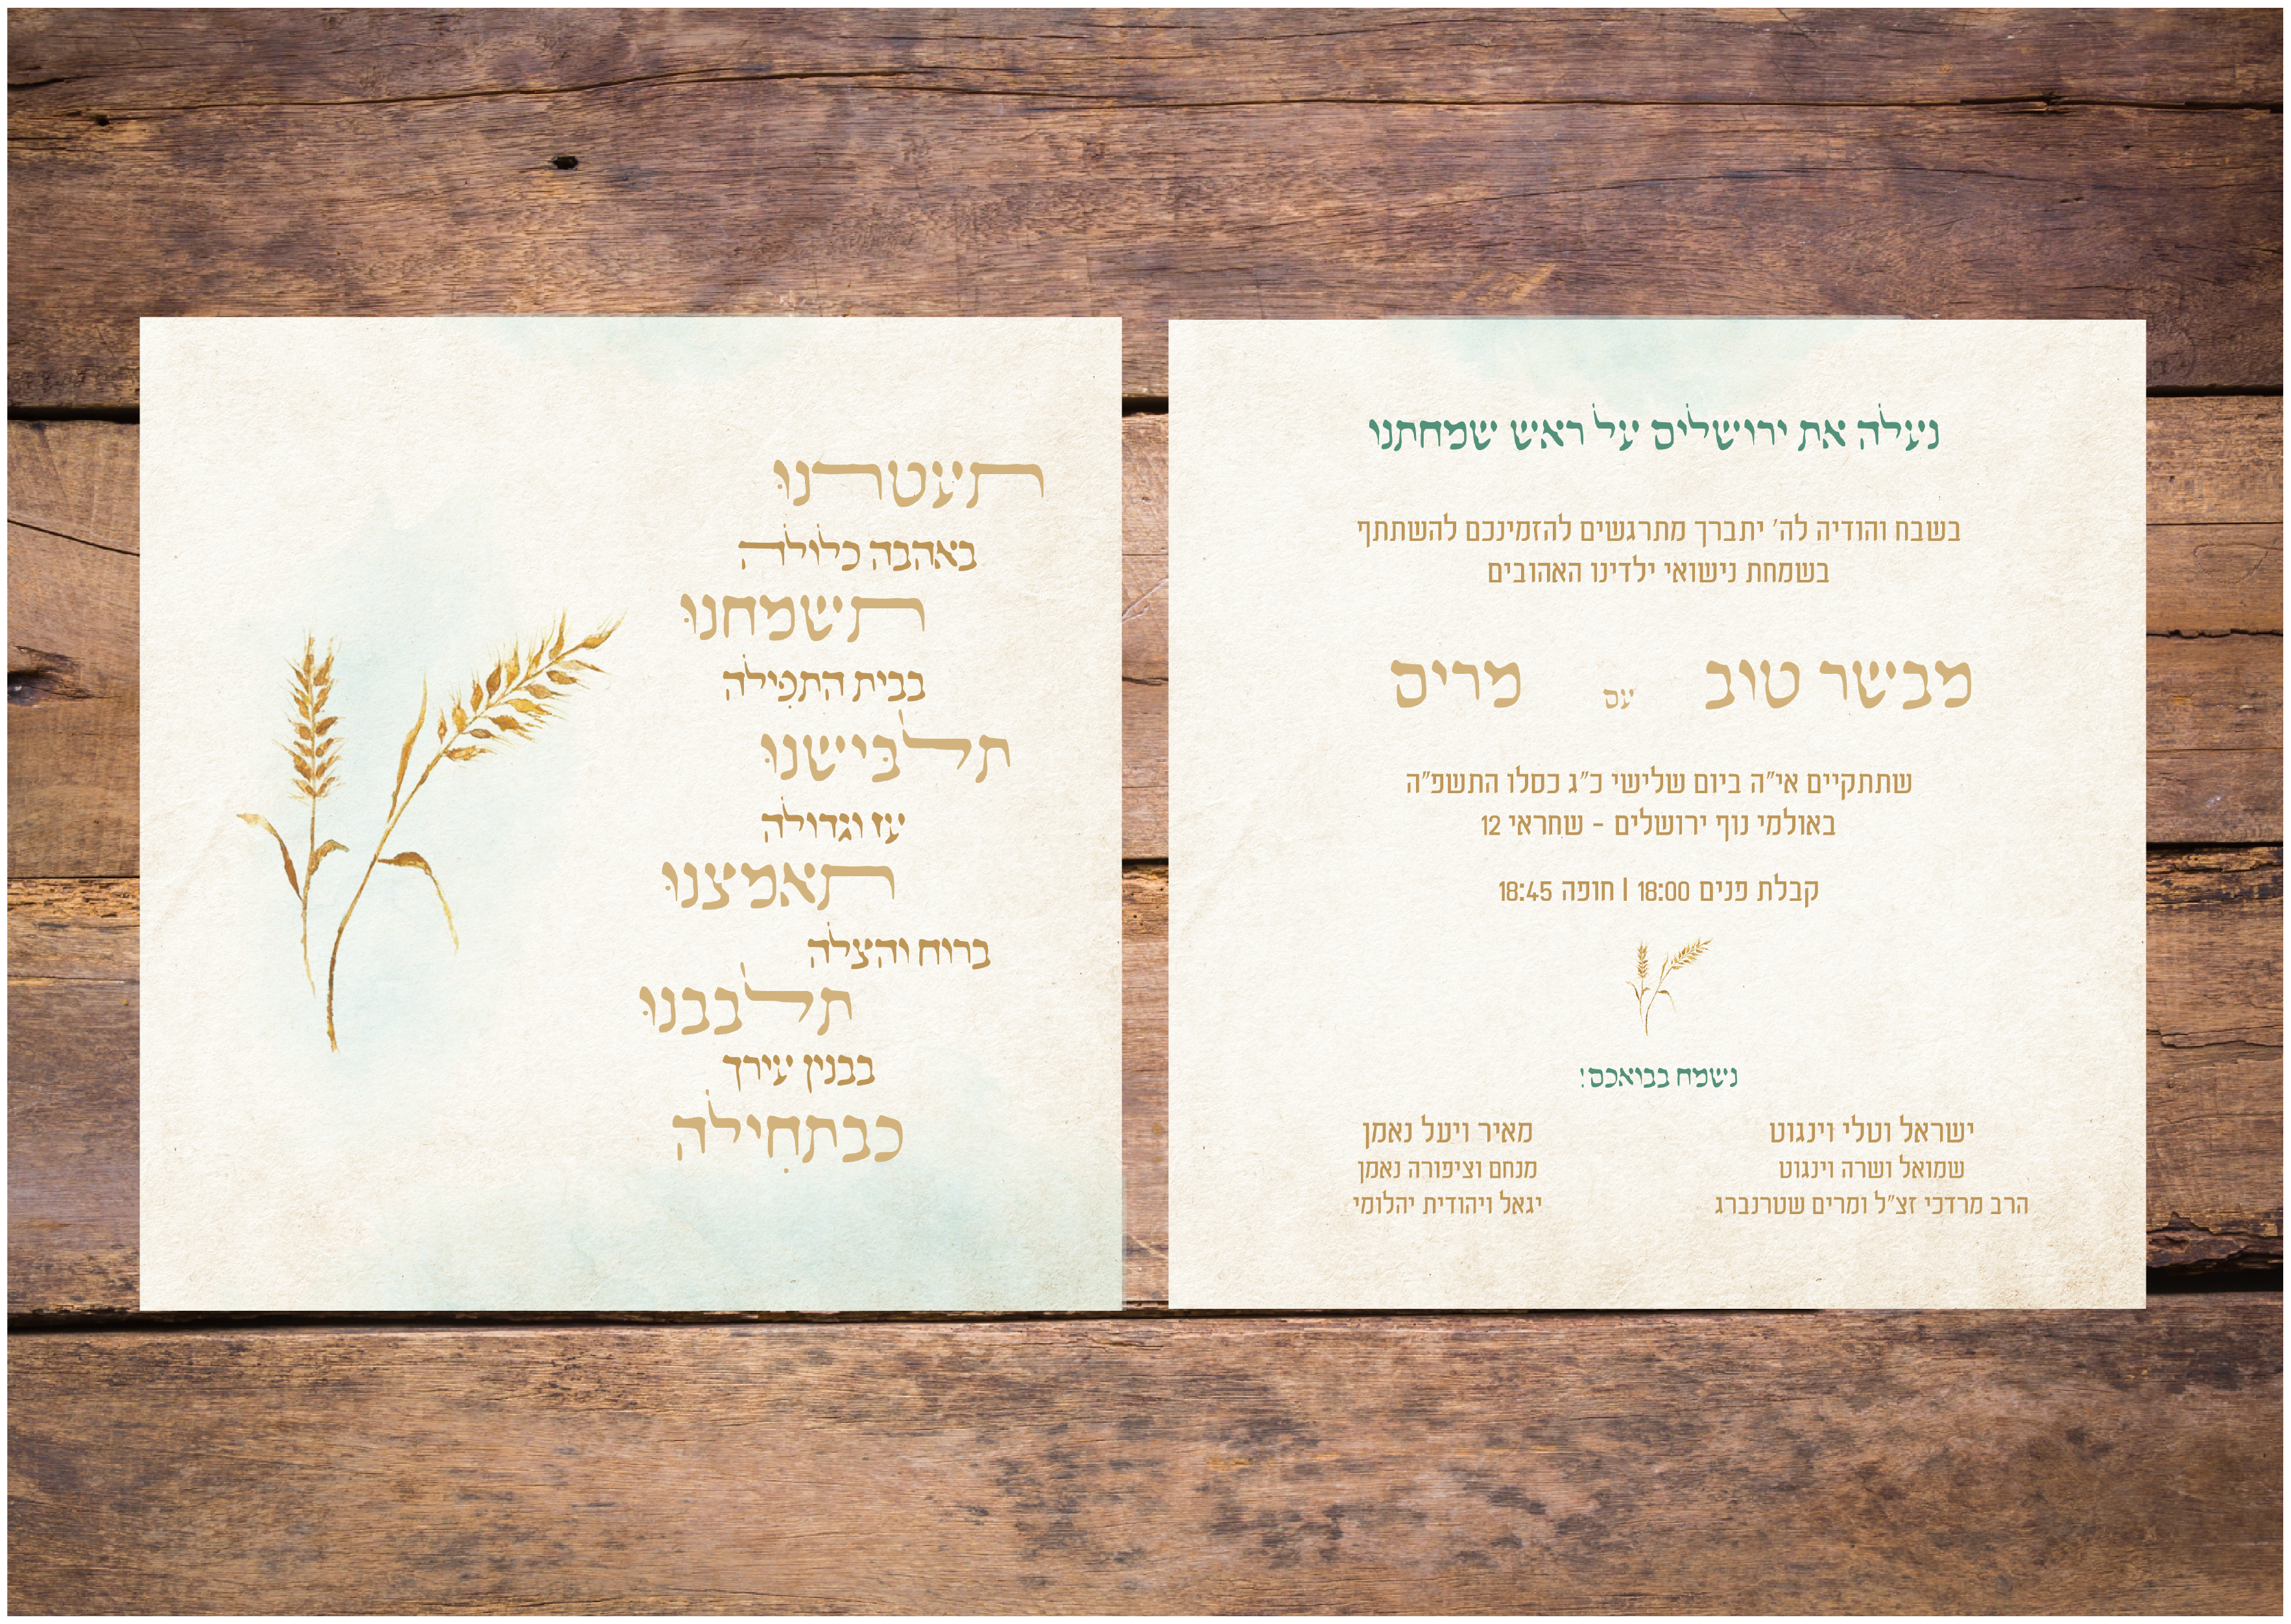 תעטרנוּ
באהבה כלולה
תשמחנוּ
בבית התפִילה
תלבּישנוּ
עז וגדולה
תאמצנוּ
ברוח והצלה
תלבבנוּ
בבנין עירך
כבתחִילה
נעלה את ירושלים על ראש שמחתנו
בשבח והודיה לה' יתברך מתרגשים להזמינכם להשתתף
בשמחת נישואי ילדינו האהובים
מבשר טוב עם מרים
שתתקיים אי"ה ביום שלישי כ"ג כסלו התשפ"ה
באולמי נוף ירושלים - שחראי 12
קבלת פנים 18:00 | חופה 18:45
נשמח בבואכם!
ישראל וטלי וינגוט
שמואל ושרה וינגוט
הרב מרדכי זצ"ל ומרים שטרנברג
מאיר ויעל נאמן
מנחם וציפורה נאמן
יגאל ויהודית יהלומי